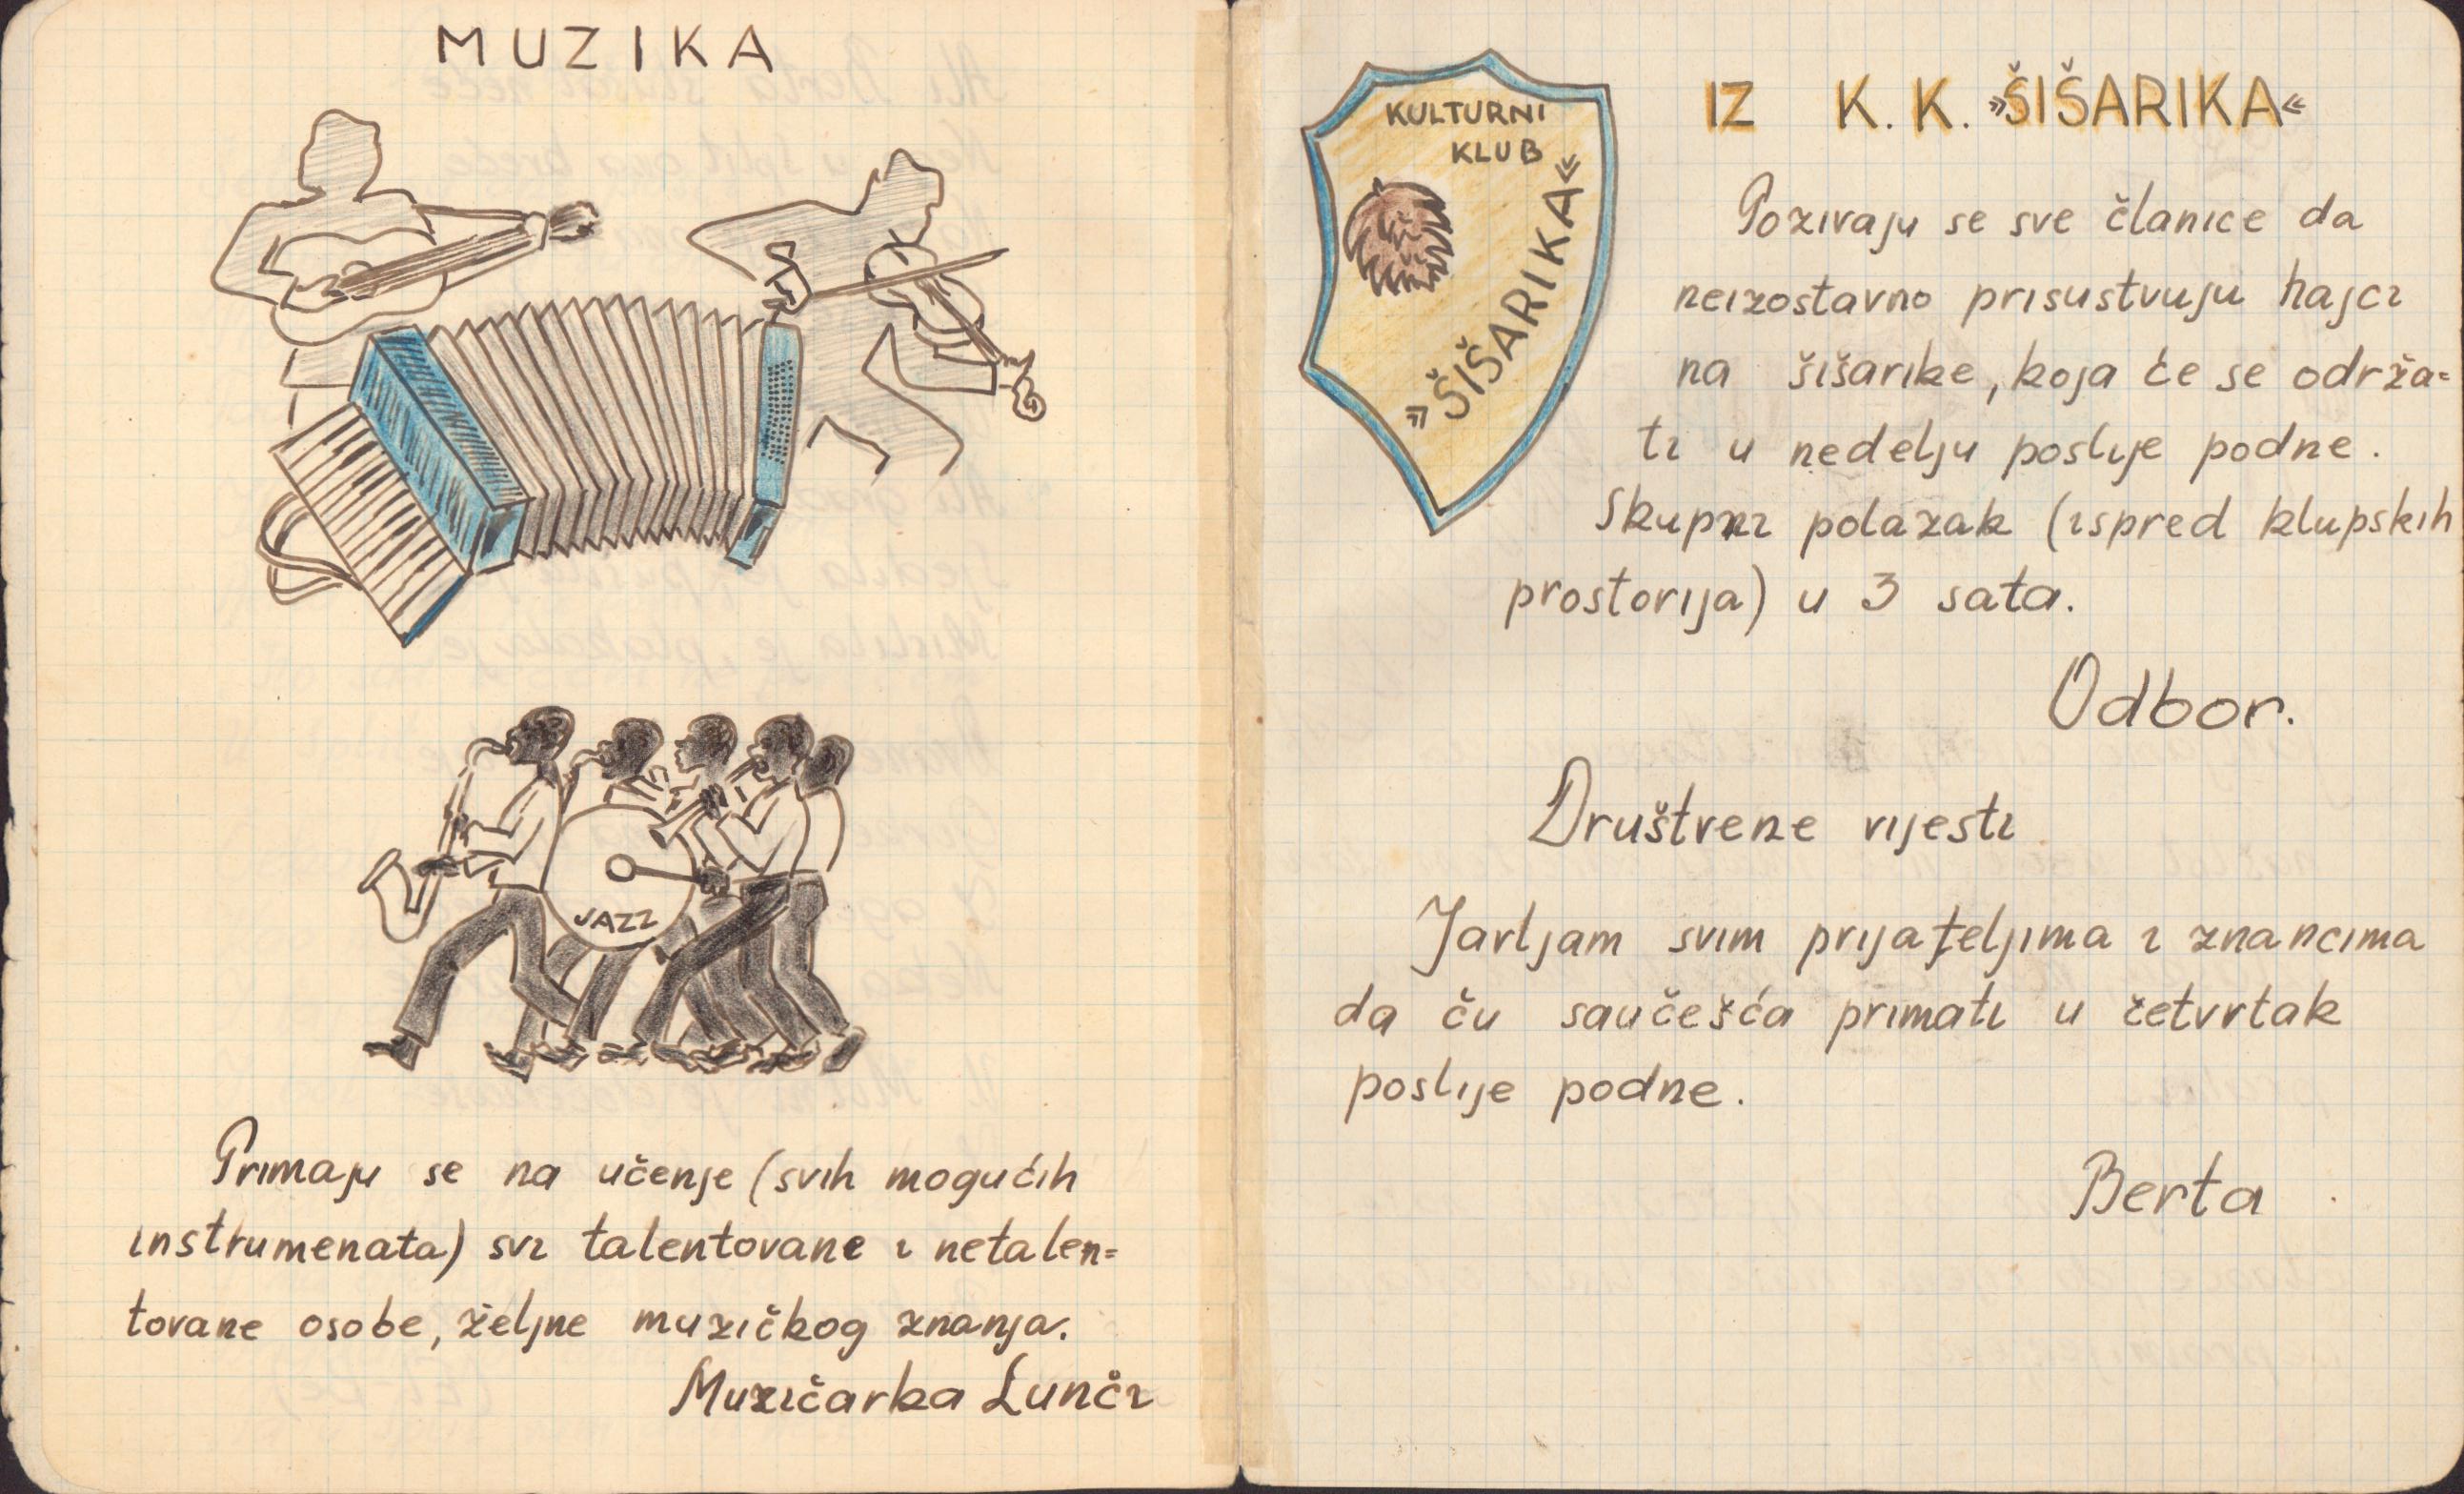 MUZIKA
JAZZ
Primaju se na učenje (svih mogućih
instrumenata) svi talentovane i netalen=
tovane osobe, željne muzičkog znanja.
Muzičarka Lunči
KULTURNI
KLUB
»ŠIŠARIKA«
IZ K. K. »ŠIŠARIKA«
Pozivaju se sve članice da
neizostavno prisustvuju hajci
na šišarike, koja će se održa=
ti u nedelju poslije podne.
Skupni polazak (ispred klupskih
prostorija) u 3 sata.
Odbor.
Društvene vijesti
Javljam svim prijateljima i znancima
da ču saučešća primati u četvrtak
poslije podne.
Berta